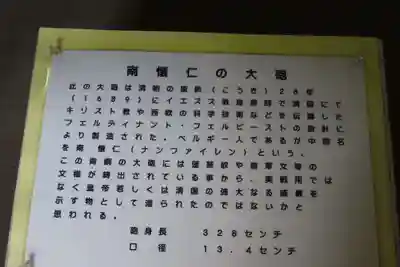 南懐仁の大砲
此の大砲は清朝の康熙(こうき)28年
(1689)にイエズス戦 師で清国にて
キリスト教や西欧の科学技術などを伝課した
フェルディナント・フェルビーストの設計に
より製造された。ベルギー人であるが中国名
を南懐仁(ナンファイレン)という。
この青銅の大砲には 文や 草文等の
文様が鋳出されている事から、実戦用では
なく皇帝若しくは清国の強大なる威厳を
示す物として造られたのではないかと
思われる。
砲身長 328センチ
口径 13.4センチ